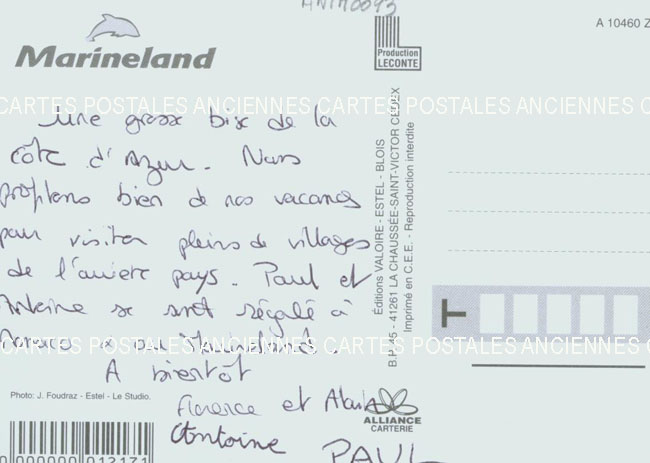 ANIM0093
Marineland
Production
LECONTE
A 10460 Z
CARTES POSTALES ANCIENNES CARTES POSTALES ANCIENNES C
Une grosse bise de la
côte d'Azur. Nous
profitons bien de nos vacances
pour visiter pleins de villages
de l'arrière pays. Paul et
Antoine se sont régalé à
au Marineland.
CARTES POSTALES ANCIENNES CARTES POSTALES ANCIENNES C
A bientôt
Florence et Alain
Antoine
PAUL
Photo: J. Foudraz - Estel - Le Studio.
0 000000 012171
Éditions VALOIRE - ESTEL - BLOIS
B.P. 45 - 41261 LA CHAUSSÉE-SAINT-VICTOR CEDEX
Imprimé en C.E.E. - Reproduction interdite
T
ALLIANCE
CARTERIE